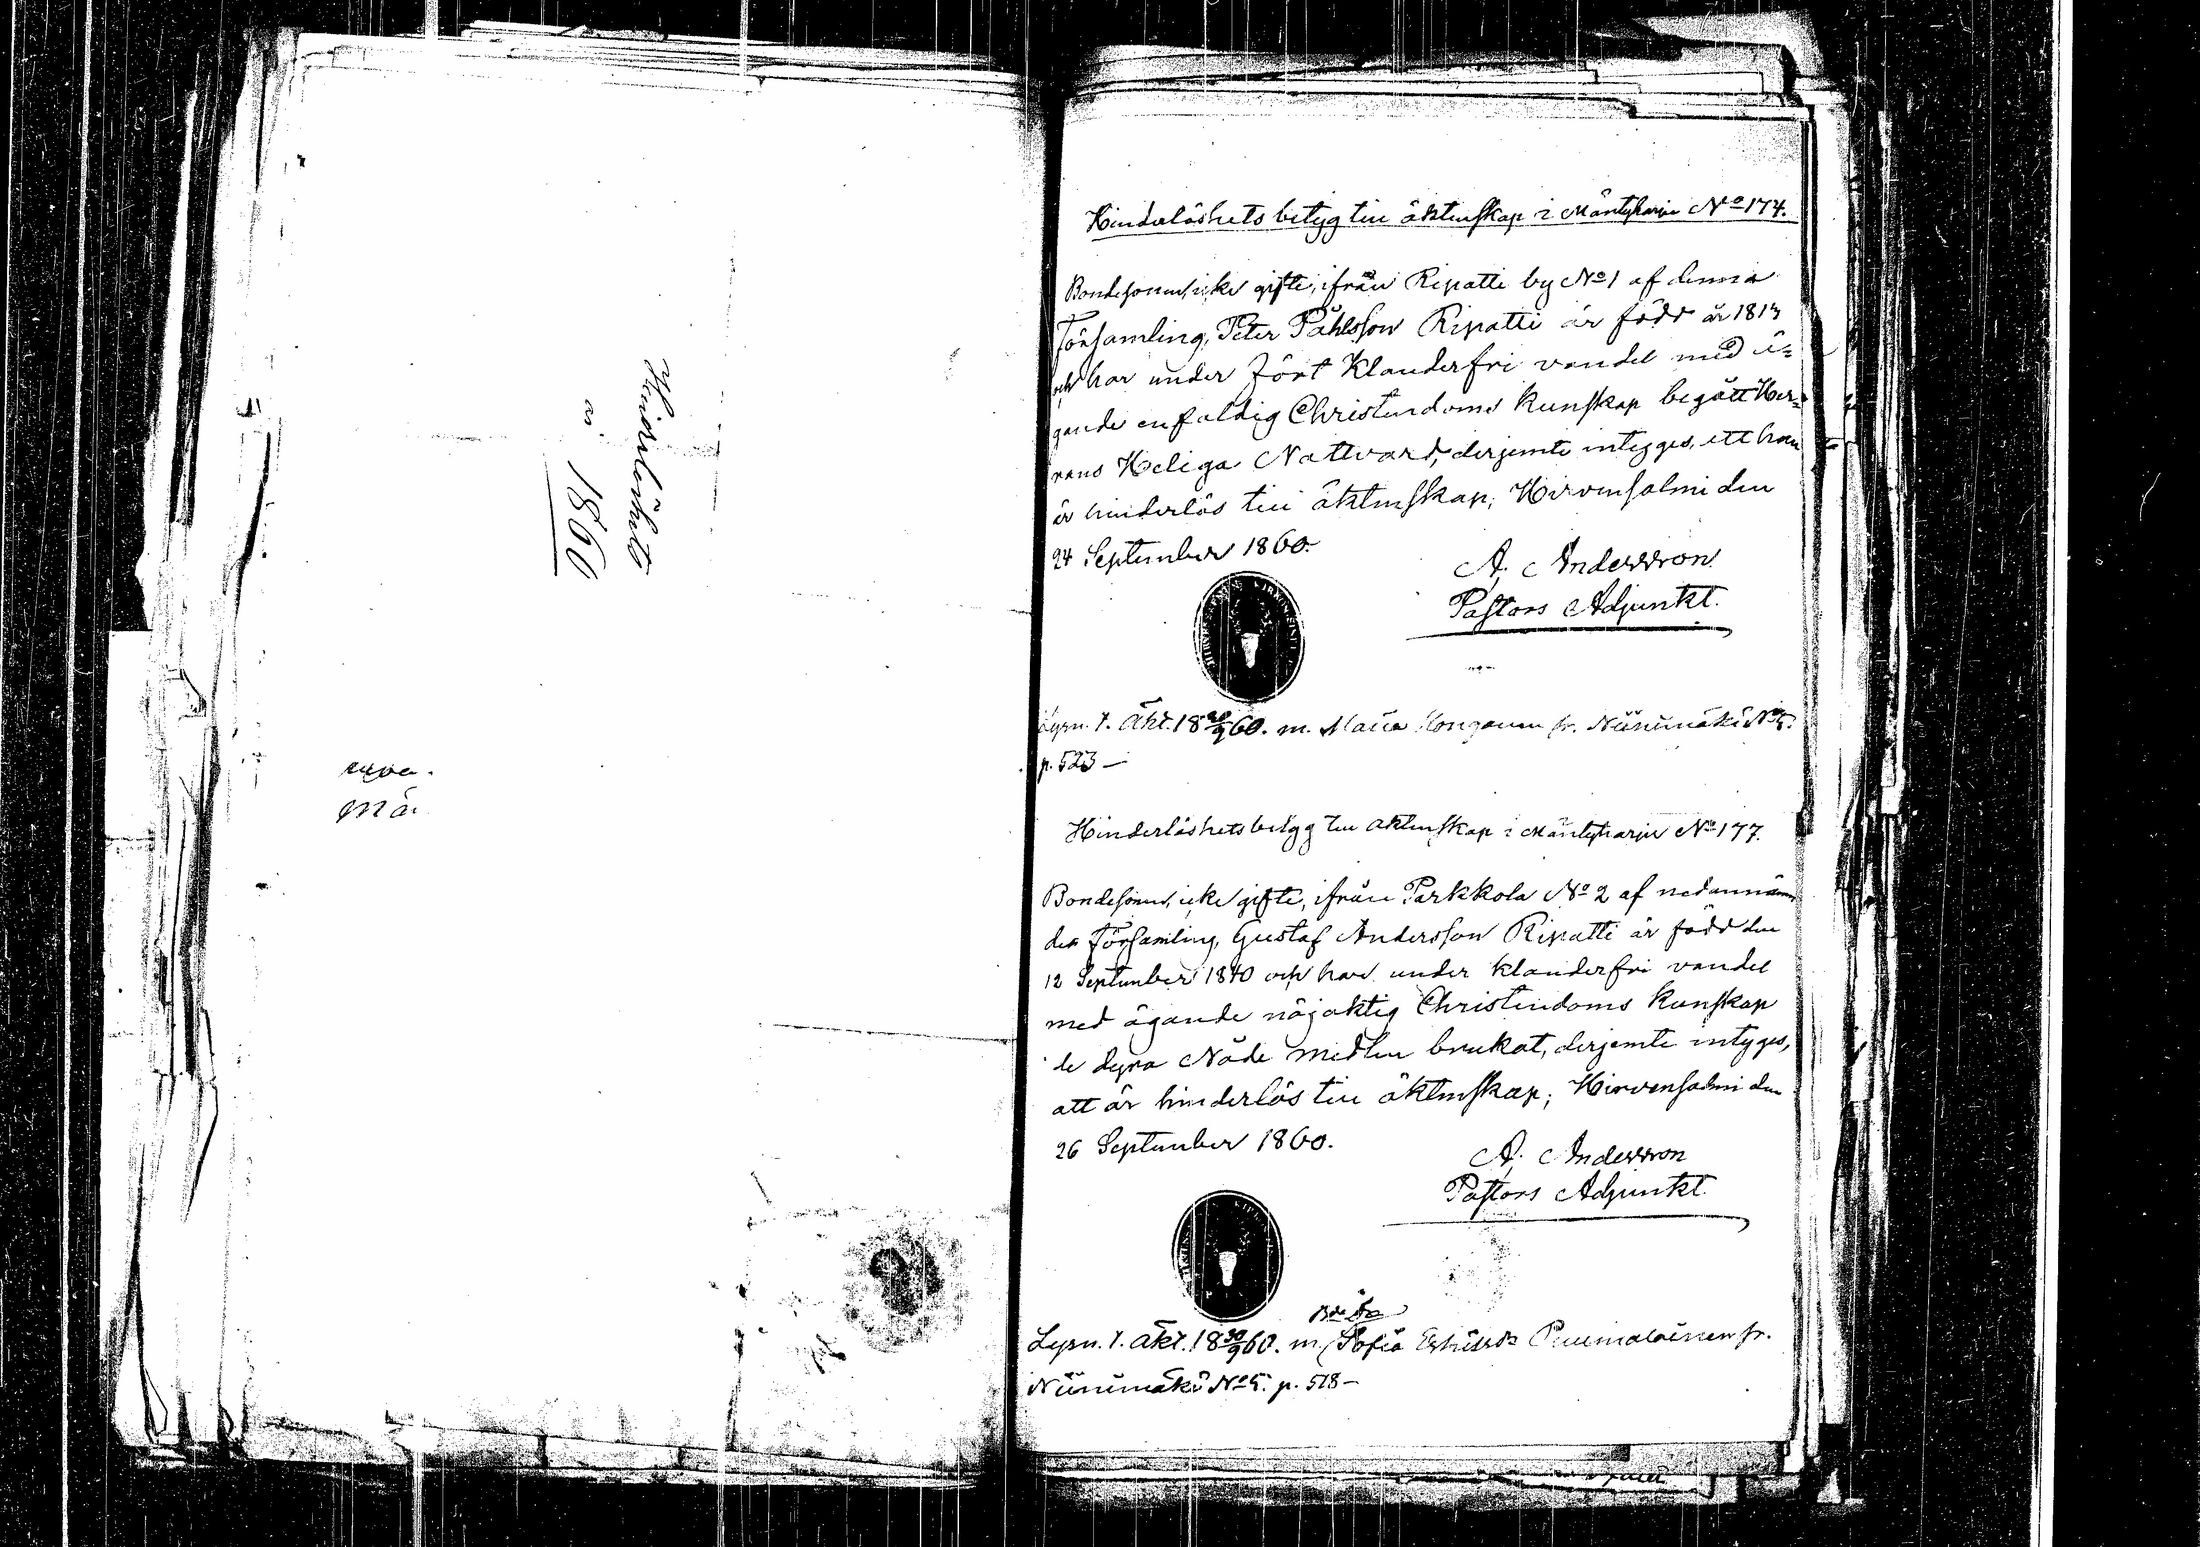 Hinderlöshets
år 1860
Mä.
Hinderlöshets betyg till äktenskap i Mäntyharju No 174.
Bondesonen, icke gifte, ifrån Ripatti by No 1 af denna
Församling, Peter Påhlsson Ripatti är född år 1813
och har under fört klanderfri vandel med ä=
gande enfaldig Christendoms kunskap begått Her=
rans Heliga Nattvard, derjemte intygges, att han
är hinderlös till äktenskap; Hirvensalmi den
24 September 1860.
A. Andersson
Pastors Adjunkt.
Lysn. t. äkt. 18 30/9 60. m. Maria fr. Niinimäki No 5.
p. 523 —
Hinderlöshets betyg till äktenskap i Mäntyharju No 177.
Bondesonen, icke gifte, ifrån Parkkola No 2 af nedannämn
da Församling, Gustaf Andersson Ripatti är född den
12 September 1840 och har under klanderfri vandel
med ägande nöjaktig Christendoms kunskap
de dyra Nåde medlen brukat, derjemte intyges,
att är hinderlös till äktenskap; Hirvensalmi den
26 September 1860.
A. Andersson
Pastors Adjunkt.
Lysn. t. äkt. 18 30/9 60. m. Sofia Puumalainen fr.
Niinimäki No 5. p. 518 —